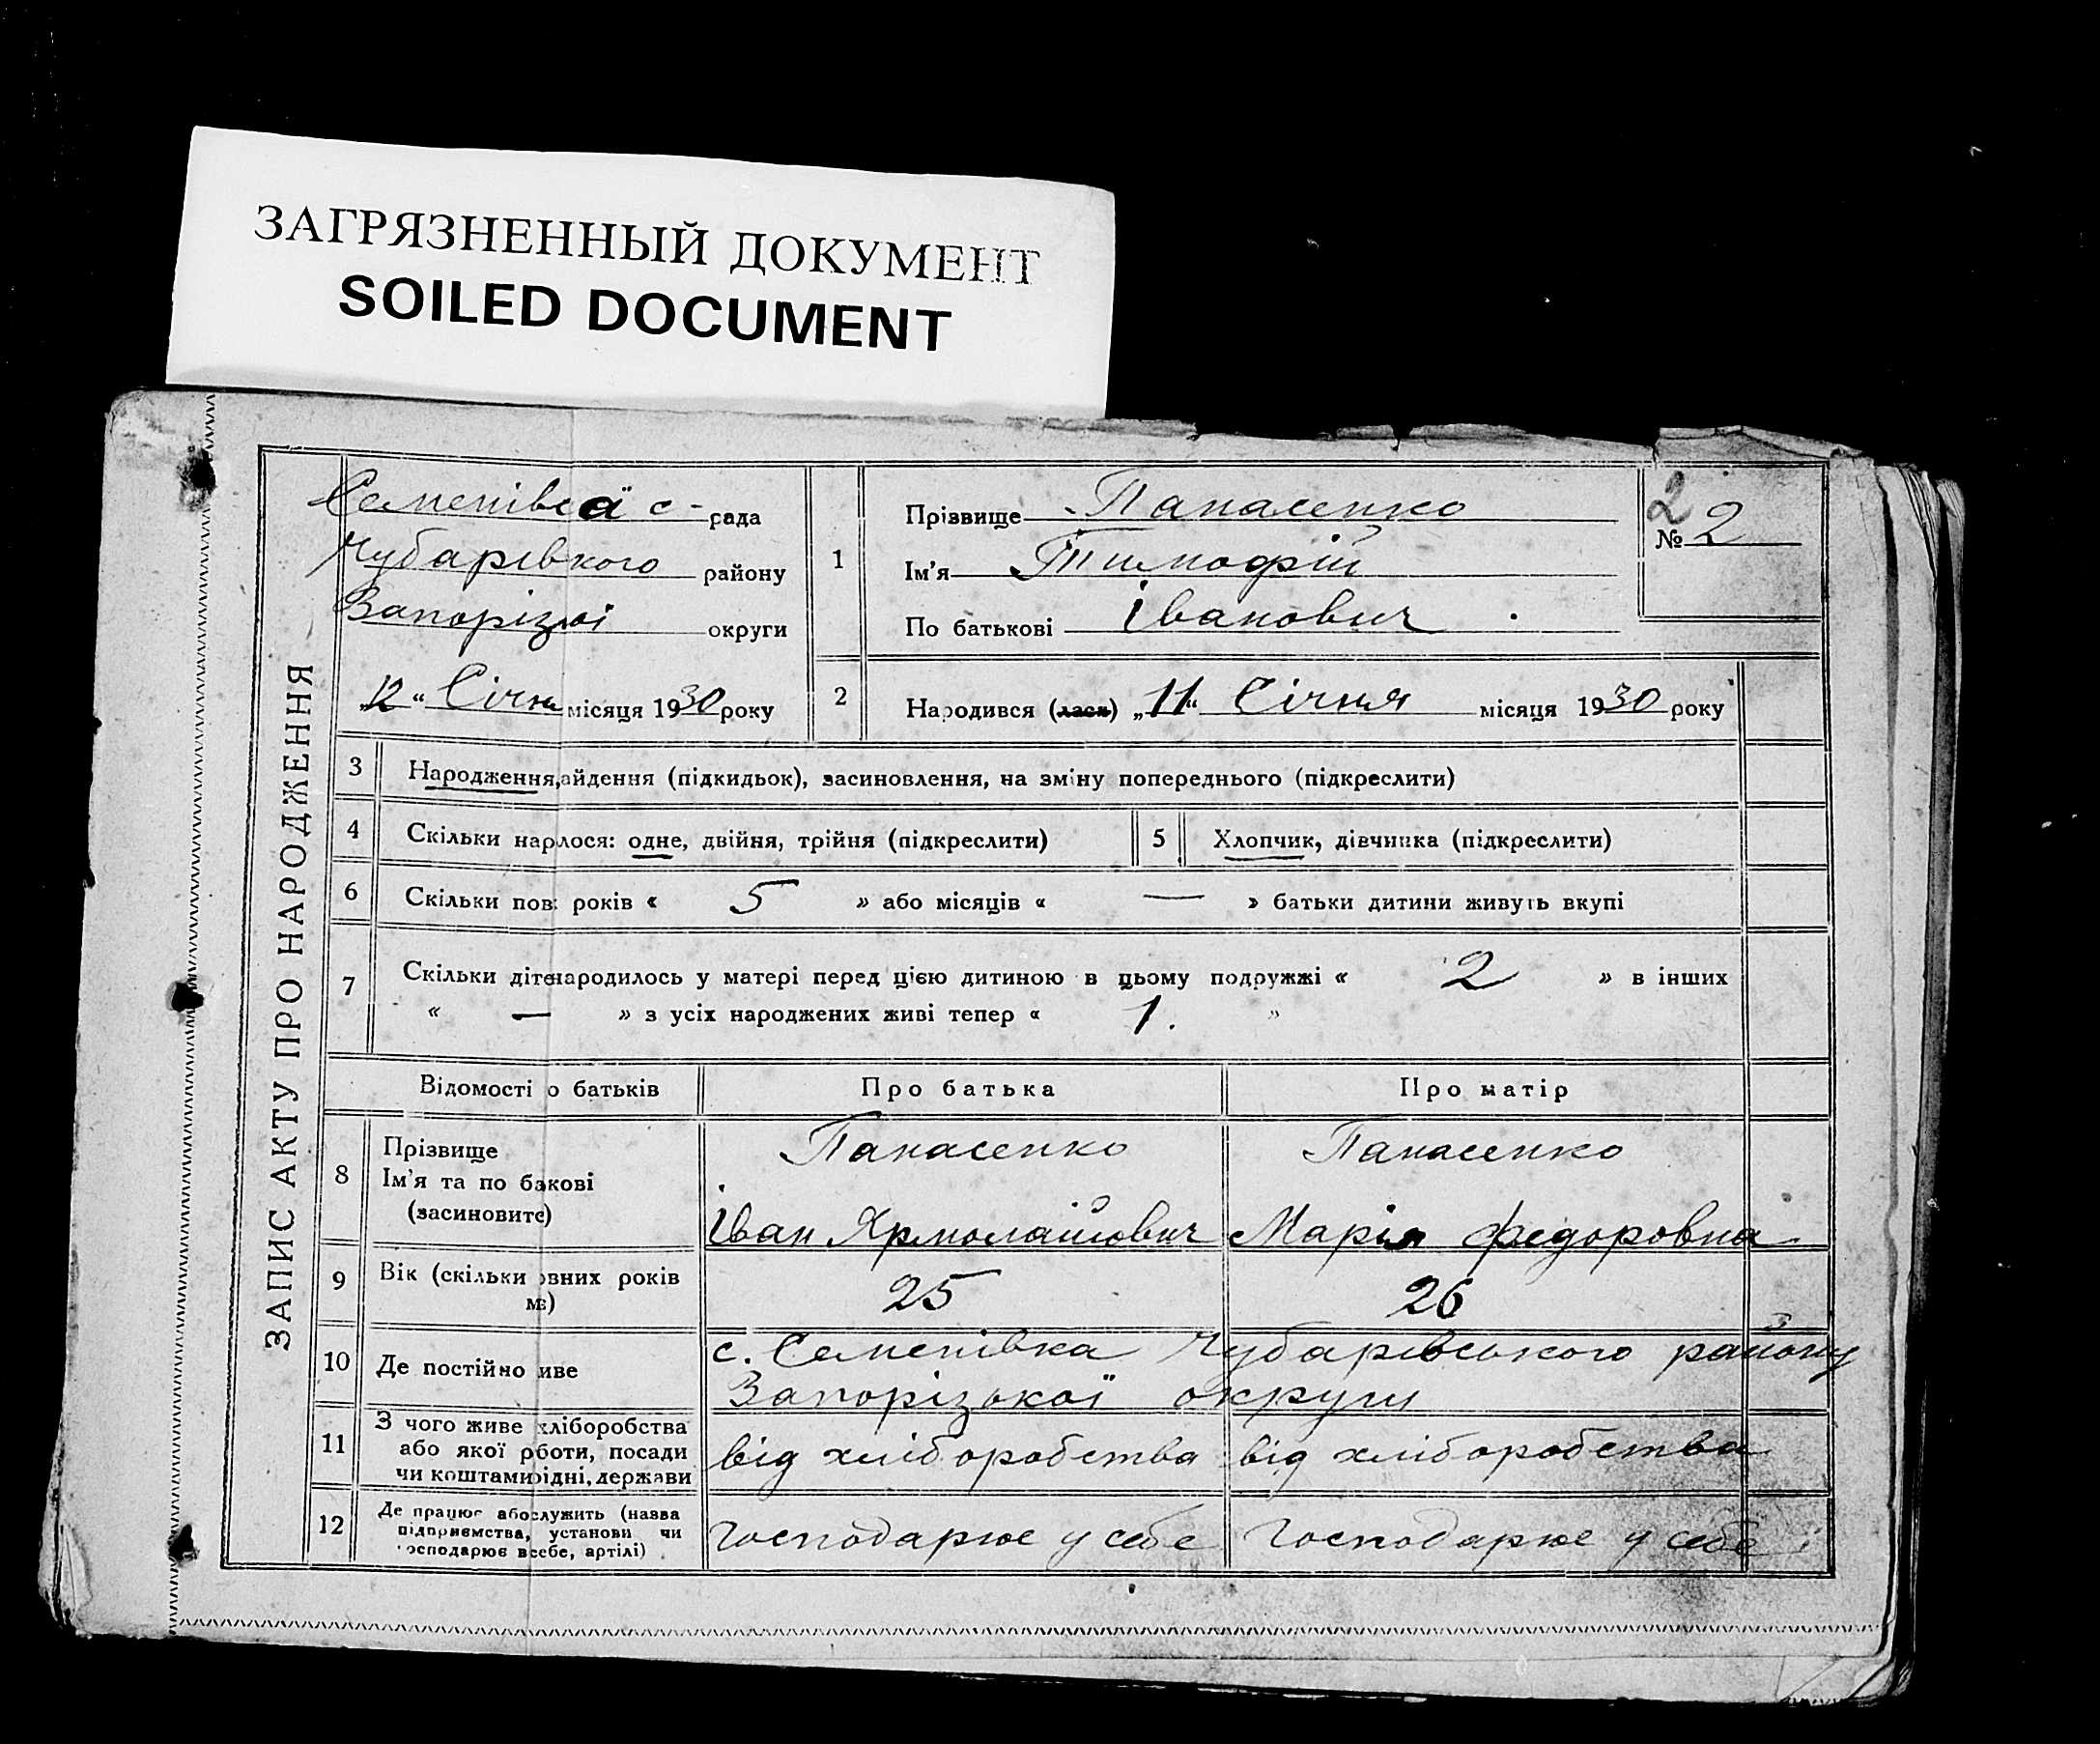 ЗАГРЯЗНЕННЫЙ ДОКУМЕНТ
SOILED DOCUMENT
ЗАПИС АКТУ ПРО НАРОДЖЕННЯ
с - рада
Чубарівкого району
Запорізкої округи
„12“ Січня місяця 1930 року
1
Прізвище Панасенко
Ім'я Тимофій
По батькові Іванович
2
№ 2
2 Народився (лася) „11“ Січня місяця 1930 року
3 Народження, айдення (підкидьок), засиновлення, на зміну попереднього (підкреслити)
4 Скільки нар лося: одне, двійня, трійня (підкреслити) 5 Хлопчик, дівчинка (підкреслити)
6 Скільки пов: років « 5 » або місяців « — » батьки дитини живуть вкупі
7 Скільки діте народилось у матері перед цією дитиною в цьому подружжі « 2 » в інших
« — » з усіх народжених живі тепер « 1. »
Відомості о батьків Про батька Про матір
8 Прізвище
Ім'я та по бакові
(засиновите)
Панасенко
Іван Ярмолайович
Панасенко
Марія Федоровна
9 Вік (скільки овних років
ма)
25 26
10 Де постійно иве
с. Семенівка Чубарівського району
Запорізької округи
11 З чого живе хліборобства
або якої рботи, посади
чи коштами рідні, держави
від хліборобства від хліборобства
12 Де працює або служить (назва
підприємства, установи чи
господарює в себе, артілі)
господарює у себе господарює у себе